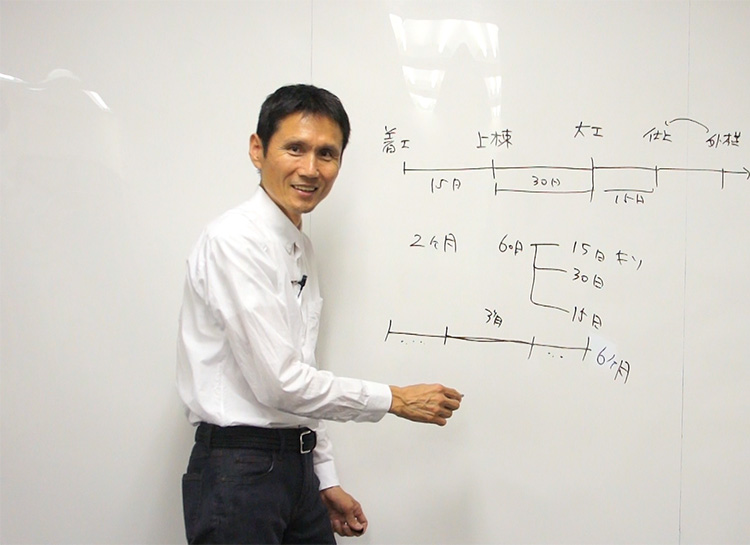 着工 上棟 大工 仕上 外構
15日 30日 15日
2ヶ月 60日 15日 キソ
30日
15日
... 3ヶ月 ... 6ヶ月